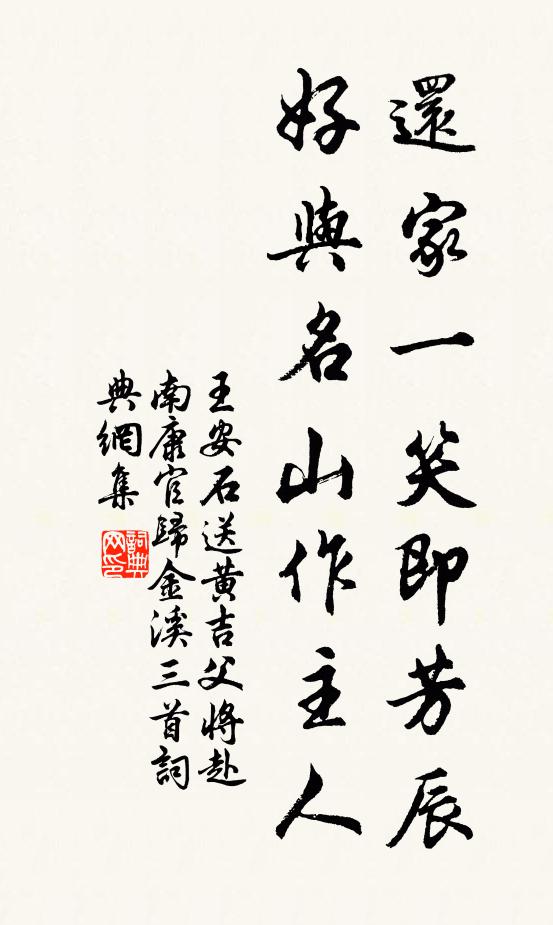 還家一笑即芳辰
好與名山作主人
王安石送黃吉父將赴
南康官歸金溪三首詞
典網集
詞典
网印